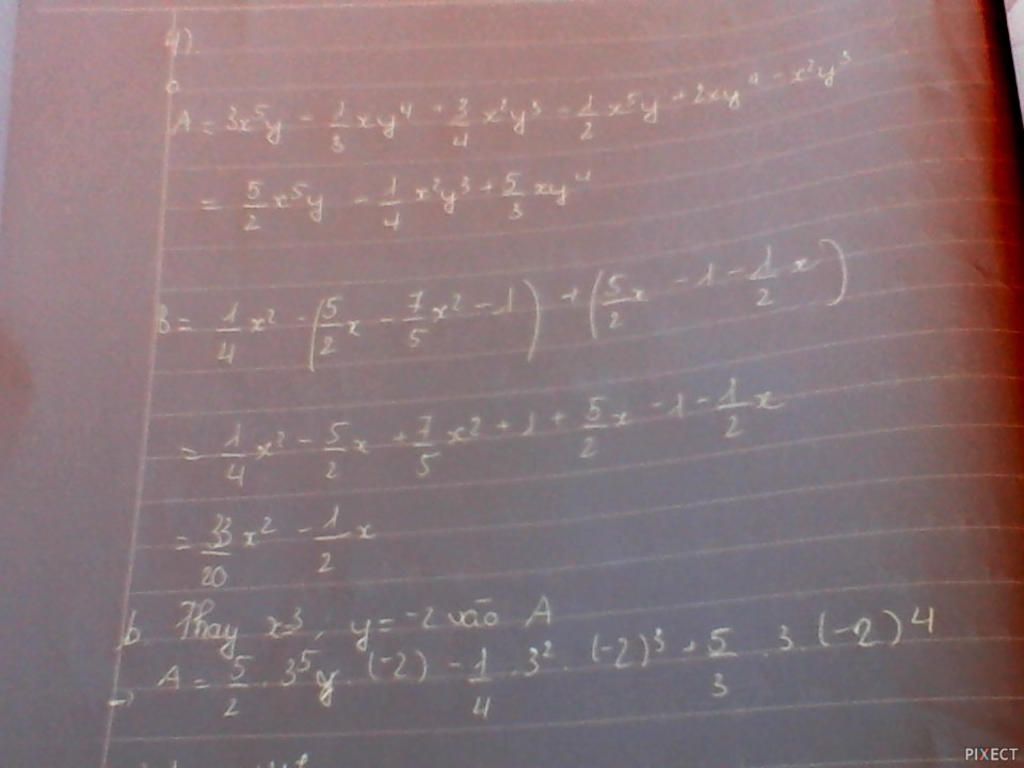 4).
a
A = 3x⁵y - 1/3 xy⁴ + 3/4 x²y³ - 1/2 x⁵y + 2xy⁴ - x²y³
= 5/2 x⁵y - 1/4 x²y³ + 5/3 xy⁴
B = 1/4 x² - (5/2 x - 7/5 x² - 1) + (5/2 x - 1 - 1/2 x)
= 1/4 x² - 5/2 x + 7/5 x² + 1 + 5/2 x - 1 - 1/2 x
= 33/20 x² - 1/2 x
b. Thay x=3, y = -2 vào A
→ A = 5/2 . 3⁵y . (-2) - 1/4 . 3² . (-2)³ + 5/3 . 3 . (-2)⁴
PIXECT